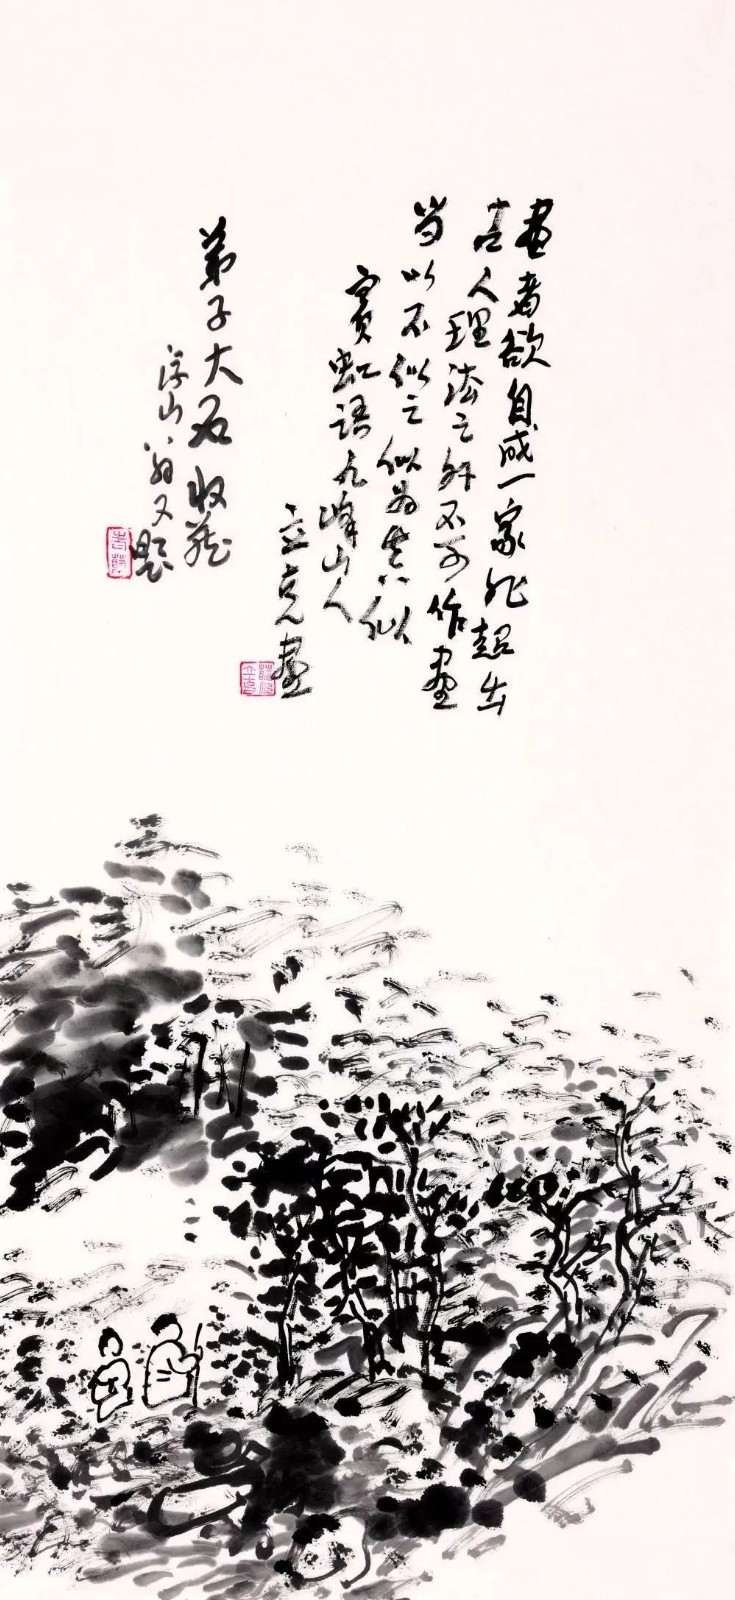 畫者欲自成一家非超出
古人理法之外不可作畫
当以不似之似为真似
賓虹語九峰山人
立 畫
弟子大石收藏
浮山翁又題